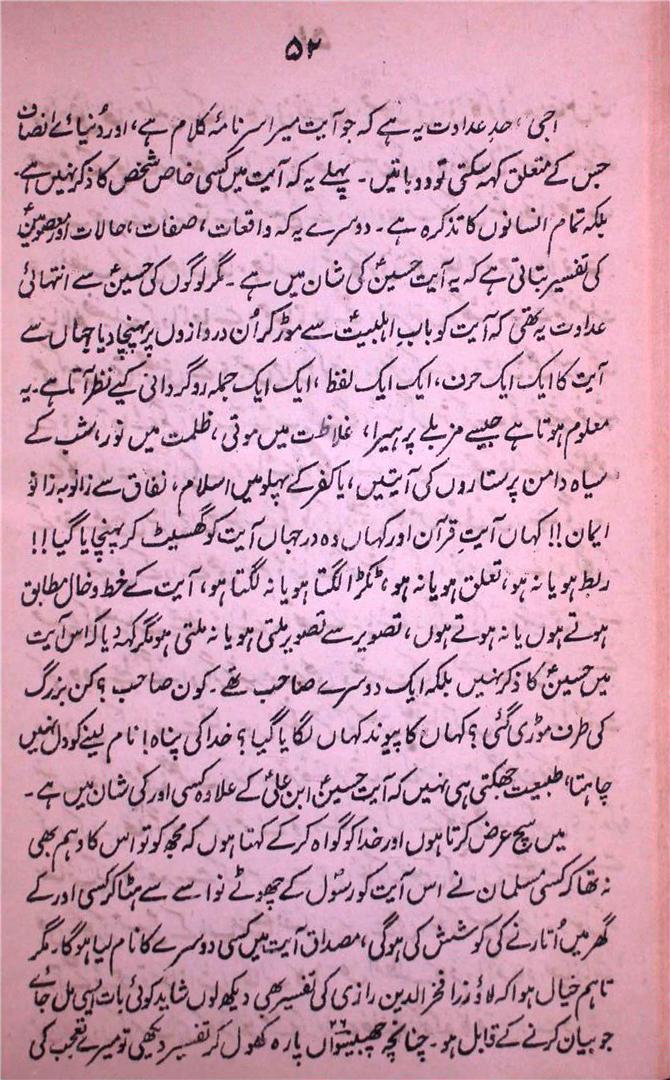 ۵۲
اجی، حدِ عداوت یہ ہے کہ جو آیت میرا سرنامۂ کلام ہے، اور دُنیائے انصاف
جس کے متعلق کہہ سکتی تو دو باتیں۔ پہلے یہ کہ آیت میں کسی خاص شخص کا ذکر نہیں ہے۔
بلکہ تمام انسانوں کا تذکرہ ہے۔ دوسرے یہ کہ واقعات، صفات، حالات اور معصومینؑ
کی تفسیر بتاتی ہے کہ یہ آیت حسینؑ کی شان میں ہے۔ مگر لوگوں کی حسینؑ سے انتہائی
عداوت یہ تھی کہ آیت کو بابِ اہلبیتؑ سے موڑ کر اُن دروازوں پر پہنچا دیا جہاں سے
آیت کا ایک ایک حرف، ایک ایک لفظ، ایک ایک جملہ روگردانی کیے نظر آتا ہے۔ یہ
معلوم ہوتا ہے جیسے مزبلے پر ہیرا، غلاظت میں موتی، ظلمت میں نور، شب کے
سیاہ دامن پر ستاروں کی آیتیں، یا کفر کے پہلو میں اسلام، نفاق سے زانو بہ زانو
ایمان!! کہاں آیتِ قرآن اور کہاں وہ در جہاں آیت کو گھسیٹ کر پہنچایا گیا!!
ربط ہو یا نہ ہو، تعلق ہو یا نہ ہو، ٹکڑا لگتا ہو یا نہ لگتا ہو، آیت کے خط و خال مطابق
ہوتے ہوں یا نہ ہوتے ہوں، تصویر سے تصویر ملتی ہو یا نہ ملتی ہو مگر کہہ دیا کہ اس آیت
میں حسینؑ کا ذکر نہیں بلکہ ایک دوسرے صاحب تھے۔ کون صاحب؟ کن بزرگ
کی طرف موڑی گئی؟ کہاں کا پیوند کہاں لگایا گیا؟ خدا کی پناہ! نام لینے کو دل نہیں
چاہتا، طبیعت جھکتی ہی نہیں کہ آیت حسینؑ ابن علیؑ کے علاوہ کسی اور کی شان میں ہے۔
میں سچ عرض کرتا ہوں اور خدا کو گواہ کرکے کہتا ہوں کہ مجھ کو تو اس کا وہم بھی
نہ تھا کہ کسی مسلمان نے اس آیت کو رسُول کے چھوٹے نواسے سے ہٹا کر کسی اور کے
گھر میں اُتارنے کی کوشش کی ہوگی، مصداق آیت میں کسی دوسرے کا نام لیا ہوگا۔ مگر
تاہم خیال ہوا کہ لاؤ ذرا فخر الدین رازی کی تفسیر بھی دیکھ لوں شاید کوئی بات ایسی مل جائے
جو بیان کرنے کے قابل ہو۔ چنانچہ چھبیسواں ۲۶ پارہ کھول کر تفسیر دیکھی تو میرے تعجب کی